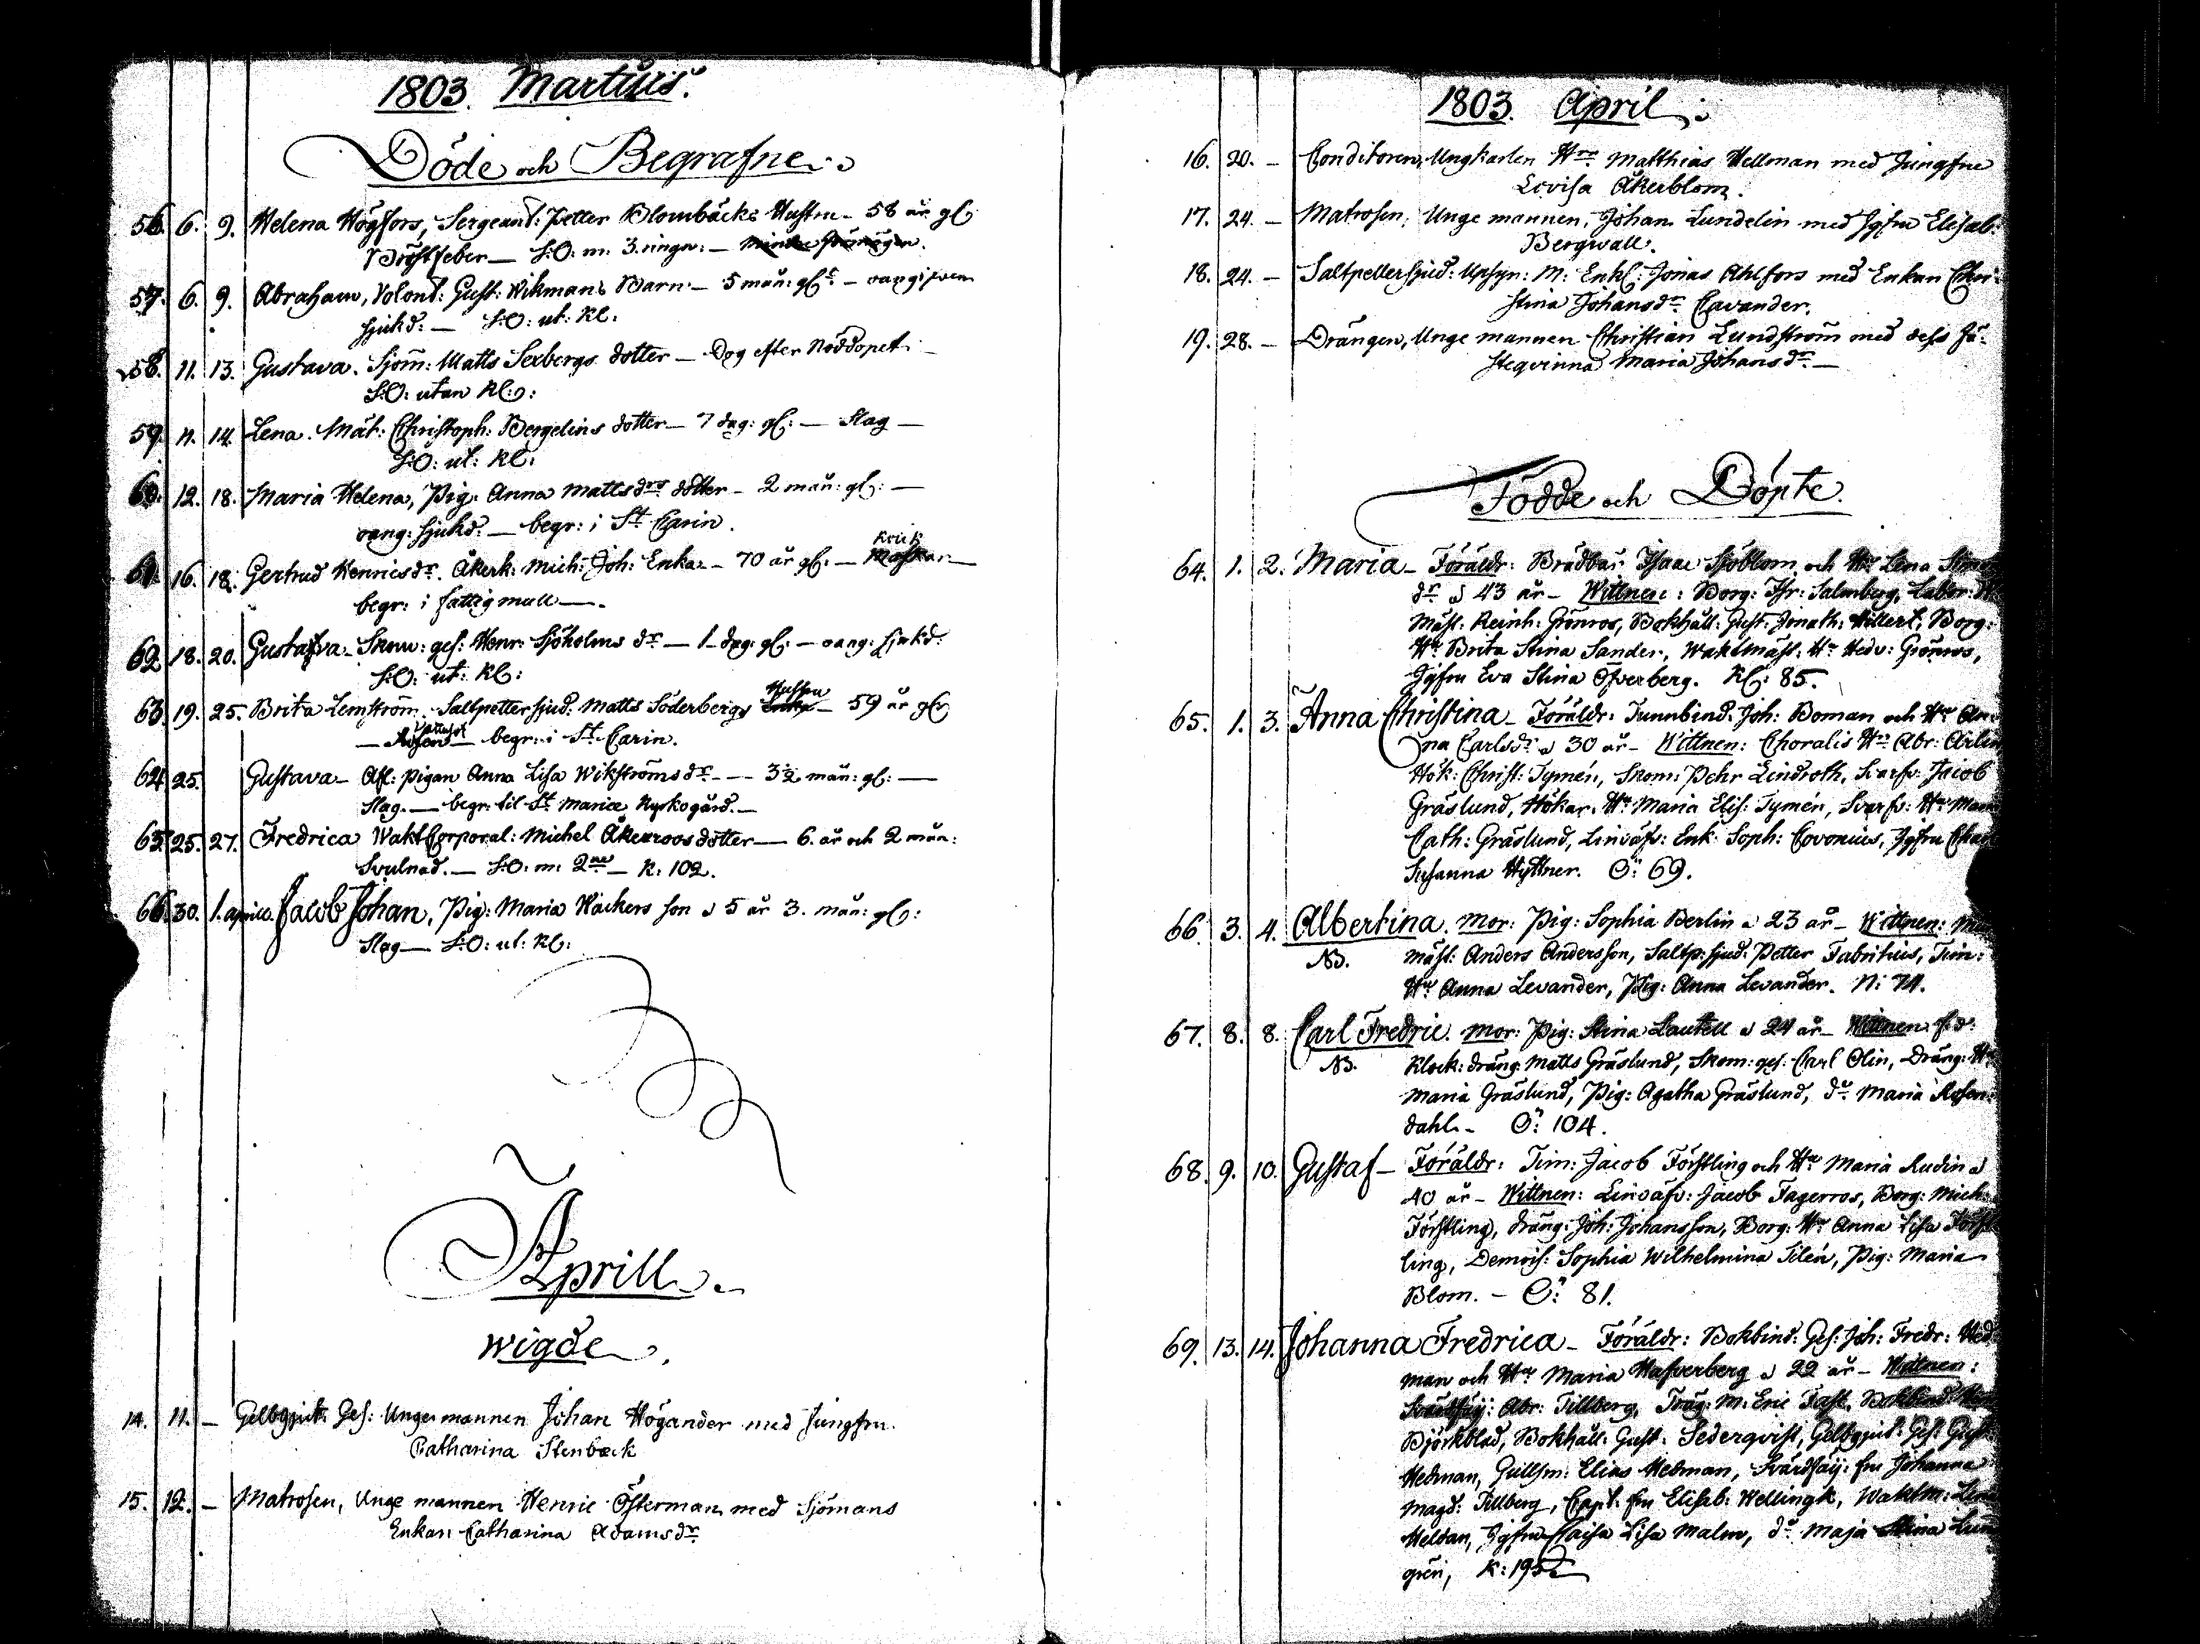 1803. Martius.
Döde och Begrafne.
56. 6. 9. Helena Högfors, Sergeant: Petter Blombäcks Hustru - 58 år gl.
Bröstfeber - S:O: m: 3. ringn: -
57. 6. 9. Abraham, Volont: Gust: Wikmans Barn - 5 mån: gl:t - oangifven
sjukd: - S:O: ut: Kl:
58. 11. 13. Gustava. Sjöm: Matts Sexbergs dotter - Dog efter Nöddopet -
S:O: utan Kl:
59. 11. 14. Lena. Mat: Christoph: Bergelins dotter - 7 dag: gl: - Slag -
S:O: ut: Kl:
60. 12. 18. Maria Helena, Pig: Anna Mattsdrs dotter - 2 mån: gl: -
oang: sjukd: - begr: i St Carin.
61. 16. 18. Gertrud Henricsdr. Åkerk: Mich: Joh: Enka - 70 år gl: -
begr: i fattig mull -.
62. 18. 20. Gustafva - Skom: ges: Henr: Sjöholms dr - 1 dag: gl: - oang: sjukd:
S:O: ut: Kl:
63. 19. 25. Brita Lemström. Saltpettersjud: Matts Söderbergs Hustru - 59 år gl:
- begr: i St Carin.
64. 25. Gustava - Afl: pigan Anna Lisa Wikströms dr - - 3 1/2 mån: gl: -
Slag. - begr: til St Mariæ Kyrkogård. -
65. 25. 27. Fredrica Wakt Corporal: Michel Åkerroos dotter - 6. år och 2 mån:
Svulnad. - S:O: m: 2ne - K: 102.
66. 30. 1. april. Jacob Johan, Pig: Maria Wackers son a 5 år 3. mån: gl:
Slag - S:O: ut: Kl:
Aprill.
Wigde.
14. 11. - Gelbgjut: Ges: Unge mannen Johan Högander med Jungfru.
Catharina Stenbæck
15. 12. - Matrosen, Unge mannen Henric Österman med Sjömans
Enkan Catharina Adamsdr
1803. April.
16. 20. - Conditoren, Ungkarlen Hrr Matthias Hellman med Jungfru
Lovisa Åkerblom.
17. 24. - Matrosen, Unge mannen, Johan Lundelin med Jgfru Elisab:
Bergwall.
18. 24. - Saltpettersjud: Upsyn: M: Enkl: Jonas Ahlfors med Enkan Chri-
stina Johansdr Cavander.
19. 28. - Drängen, Unge mannen Christian Lundström med dess Fä-
steqvinna Maria Johansdr -
Födde och Döpte.
64. 1. 2. Maria - Föräldr: Brädbär: Isaac Sjöblom och Hu Lena
dr a 43 år - Wittnen: Borg: Salmberg, Labor:
Mäst: Reinh: Grönros, Bokhåll: Gust: Jonath: Hillert, Borg:
Hu Brita Stina Sander, Waktmäst: Hu Hedv: Grönros,
Jgfru Eva Stina Öfverberg. Kl: 85.
65. 1. 3. Anna Christina - Föräldr: Tunnbind: Joh: Boman och Hu An-
na Carlsdr a 30 år - Wittnen: Choralis Hrr Abr:
Hök: Christ: Tymén, Skom: Pehr Lindroth, Svarfv: Jacob
Gräslund, Hökar: Hu Maria Elis: Tymén, Svarfv: Hu
Cath: Gräslund, Linväfv: Enk: Soph: Covonius, Jgfru
Susanna Hyttner. Ö: 69.
66. 3. 4. Albertina. Mor: Pig: Sophia Berlin a 23 år - Wittnen:
NB. mäst: Anders Andersson, Saltp: sjud: Petter Fabritius, Tim:
Hu Anna Levander, Pig: Anna Levander. N: 74.
67. 8. 8. Carl Fredric. Mor: Pig: Stina Lautell a 24 år - Wittnen:
NB. Klock: dräng: Matts Gräslund, Skom: ges: Carl Olin, Dräng: Hu
Maria Gräslund, Pig: Agatha Gräslund, do Maria Rosen-
dahl. - Ö: 104.
68. 9. 10. Gustaf - Föräldr: Tim: Jacob Förstling och Hu Maria Rudin a
40 år - Wittnen: Linväfv: Jacob Fagerros, Borg: Mich:
Förstling, dräng: Joh: Johansson, Borg: Hu Anna Lisa Först-
ling, Demois: Sophia Wilhelmina Tilén, Pig: Maria
Blom. - Ö: 81.
69. 13. 14. Johanna Fredrica - Föräldr: Bokbind: Ges: Joh: Fredr: Hed-
man och Hu Maria Hafverberg a 22 år - Wittnen:
Svärdfäj: Abr: Tillberg, Träg: M: Eric Fast, Bokbind:
Björkblad, Bokhåll: Gust: Sederqvist, Gelbgjut: Ges: Gust:
Hedman, Gullsm: Elias Hedman, Svärdfäj: fru Johanna
Magd: Tillberg, Capt: fru Elisab: Hellingk, Waktm:
Heldan, Jgfru Caisa Lisa Malm, do Maja Stina Lund
gren, K: 195